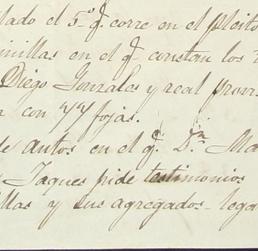 lado el 5º q. corre en el pleito
inillas en el q. constan los
Diego Gonzales y real provi
con 77 fojas.
de autos en el q. D.ª Ma
Jaques pide testimonios
llas y sus agregados legor